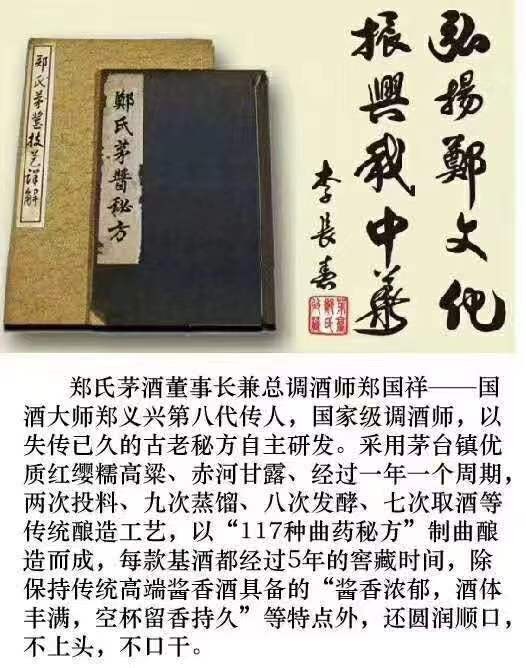 郑氏茅醬技艺详解
鄭氏茅醬秘方
弘揚鄭文化
振興我中華
李長春
郑氏茅酒董事长兼总调酒师郑国祥——国
酒大师郑义兴第八代传人，国家级调酒师，以
失传已久的古老秘方自主研发。采用茅台镇优
质红缨糯高粱、赤河甘露、经过一年一个周期，
两次投料、九次蒸馏、八次发酵、七次取酒等
传统酿造工艺，以“117种曲药秘方”制曲酿
造而成，每款基酒都经过5年的窖藏时间，除
保持传统高端酱香酒具备的“酱香浓郁，酒体
丰满，空杯留香持久”等特点外，还圆润顺口，
不上头，不口干。